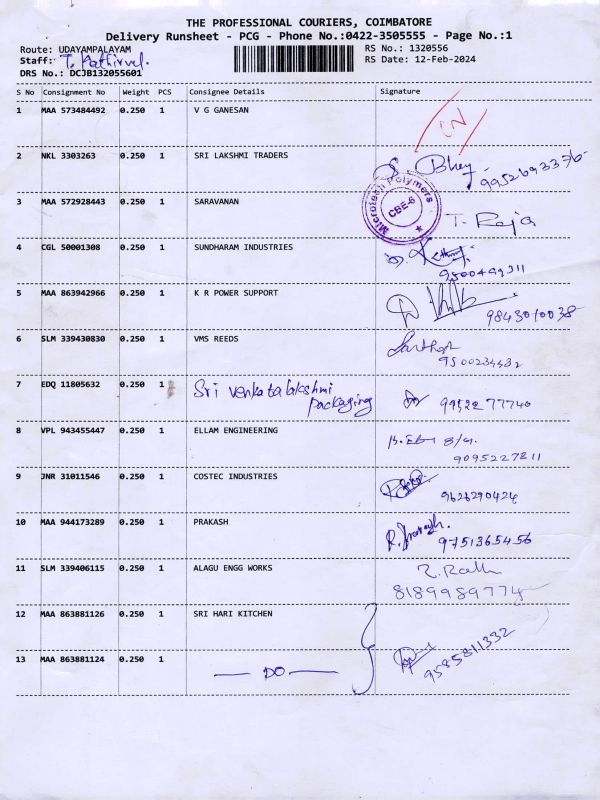 THE PROFESSIONAL COURIERS, COIMBATORE
Delivery Runsheet - PCG - Phone No.:0422-3505555 - Page No.:1
Route: UDAYAMPALAYAM RS No.: 1320556
Staff: T. Kathirvel. RS Date: 12-Feb-2024
DRS No.: DCJB132055601
S No Consignment No Weight PCS Consignee Details Signature
1 MAA 573484492 0.250 1 V G GANESAN
2 NKL 3303263 0.250 1 SRI LAKSHMI TRADERS
9952693376
Microtech Polymers
CBE-6
3 MAA 572928443 0.250 1 SARAVANAN T. Raja
4 CGL 50001308 0.250 1 SUNDHARAM INDUSTRIES
9500499311
5 MAA 863942966 0.250 1 K R POWER SUPPORT
9843010038
6 SLM 339430830 0.250 1 VMS REEDS
9500234432
7 EDQ 11805632 0.250 1 Sri venkatalakshmi
packaging 99522 77740
8 VPL 943455447 0.250 1 ELLAM ENGINEERING
9095227811
9 JNR 31011546 0.250 1 COSTEC INDUSTRIES
9626290424
10 MAA 944173289 0.250 1 PRAKASH
9751365456
11 SLM 339406115 0.250 1 ALAGU ENGG WORKS
8189989774
12 MAA 863881126 0.250 1 SRI HARI KITCHEN
9585811332
13 MAA 863881124 0.250 1 — DO —